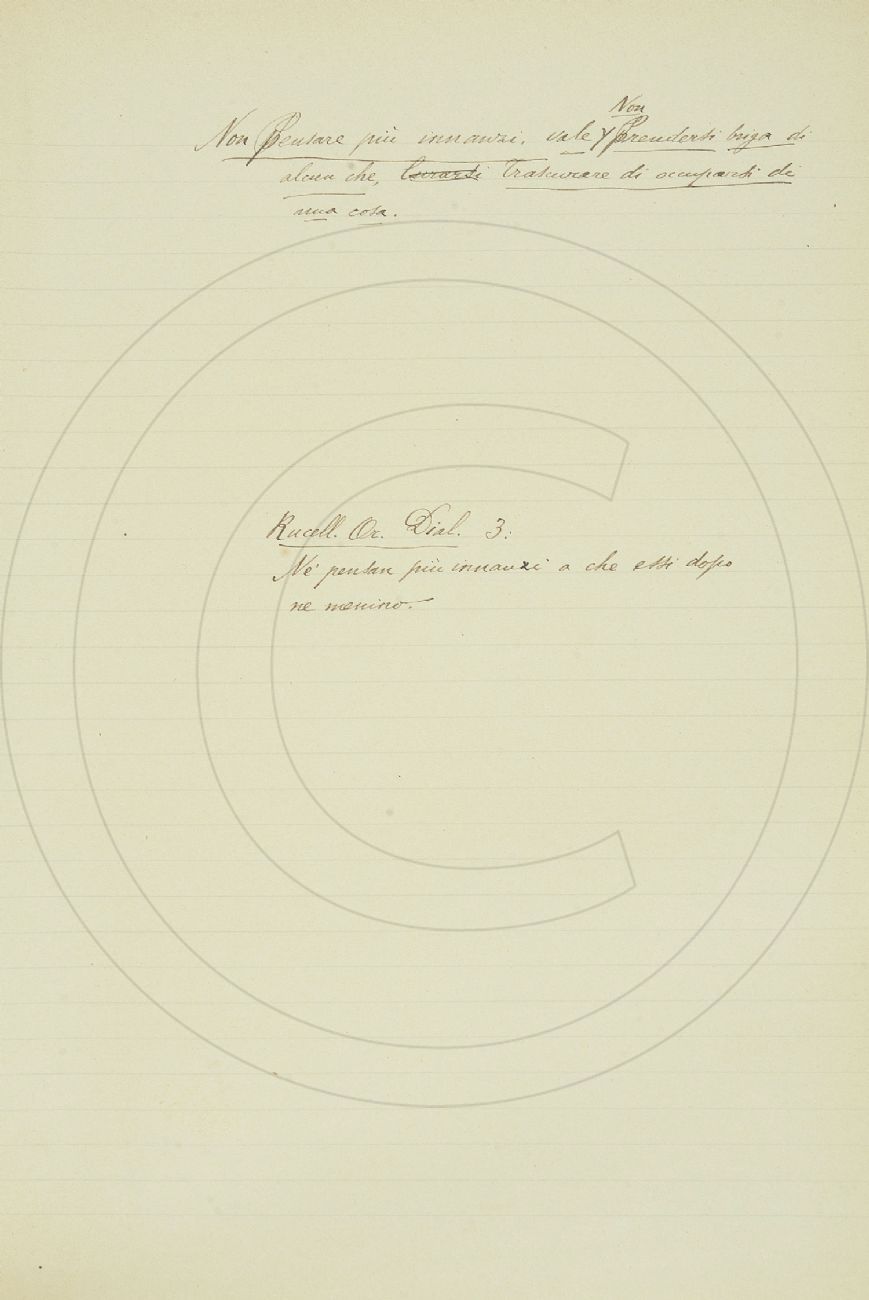 Non
Non Pensare più innanzi, vale Prendersi briga di
alcun che, Curarsi Trascurare di occuparsi di
una cosa.
Rucell. Or. Dial. 3:
Nè pensan più innanzi a che essi dopo
ne menino.